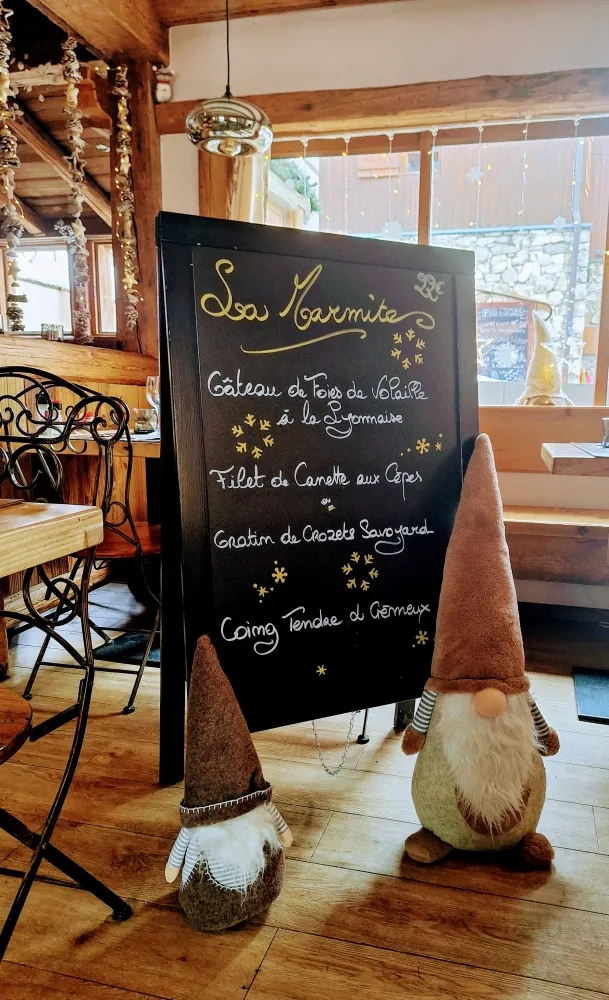 22€
La Marmite
Gâteau de Foies de Volaille
à la Lyonnaise
Filet de Canette aux Cèpes
ou
Gratin de Crozets Savoyard
Coing Tendre &